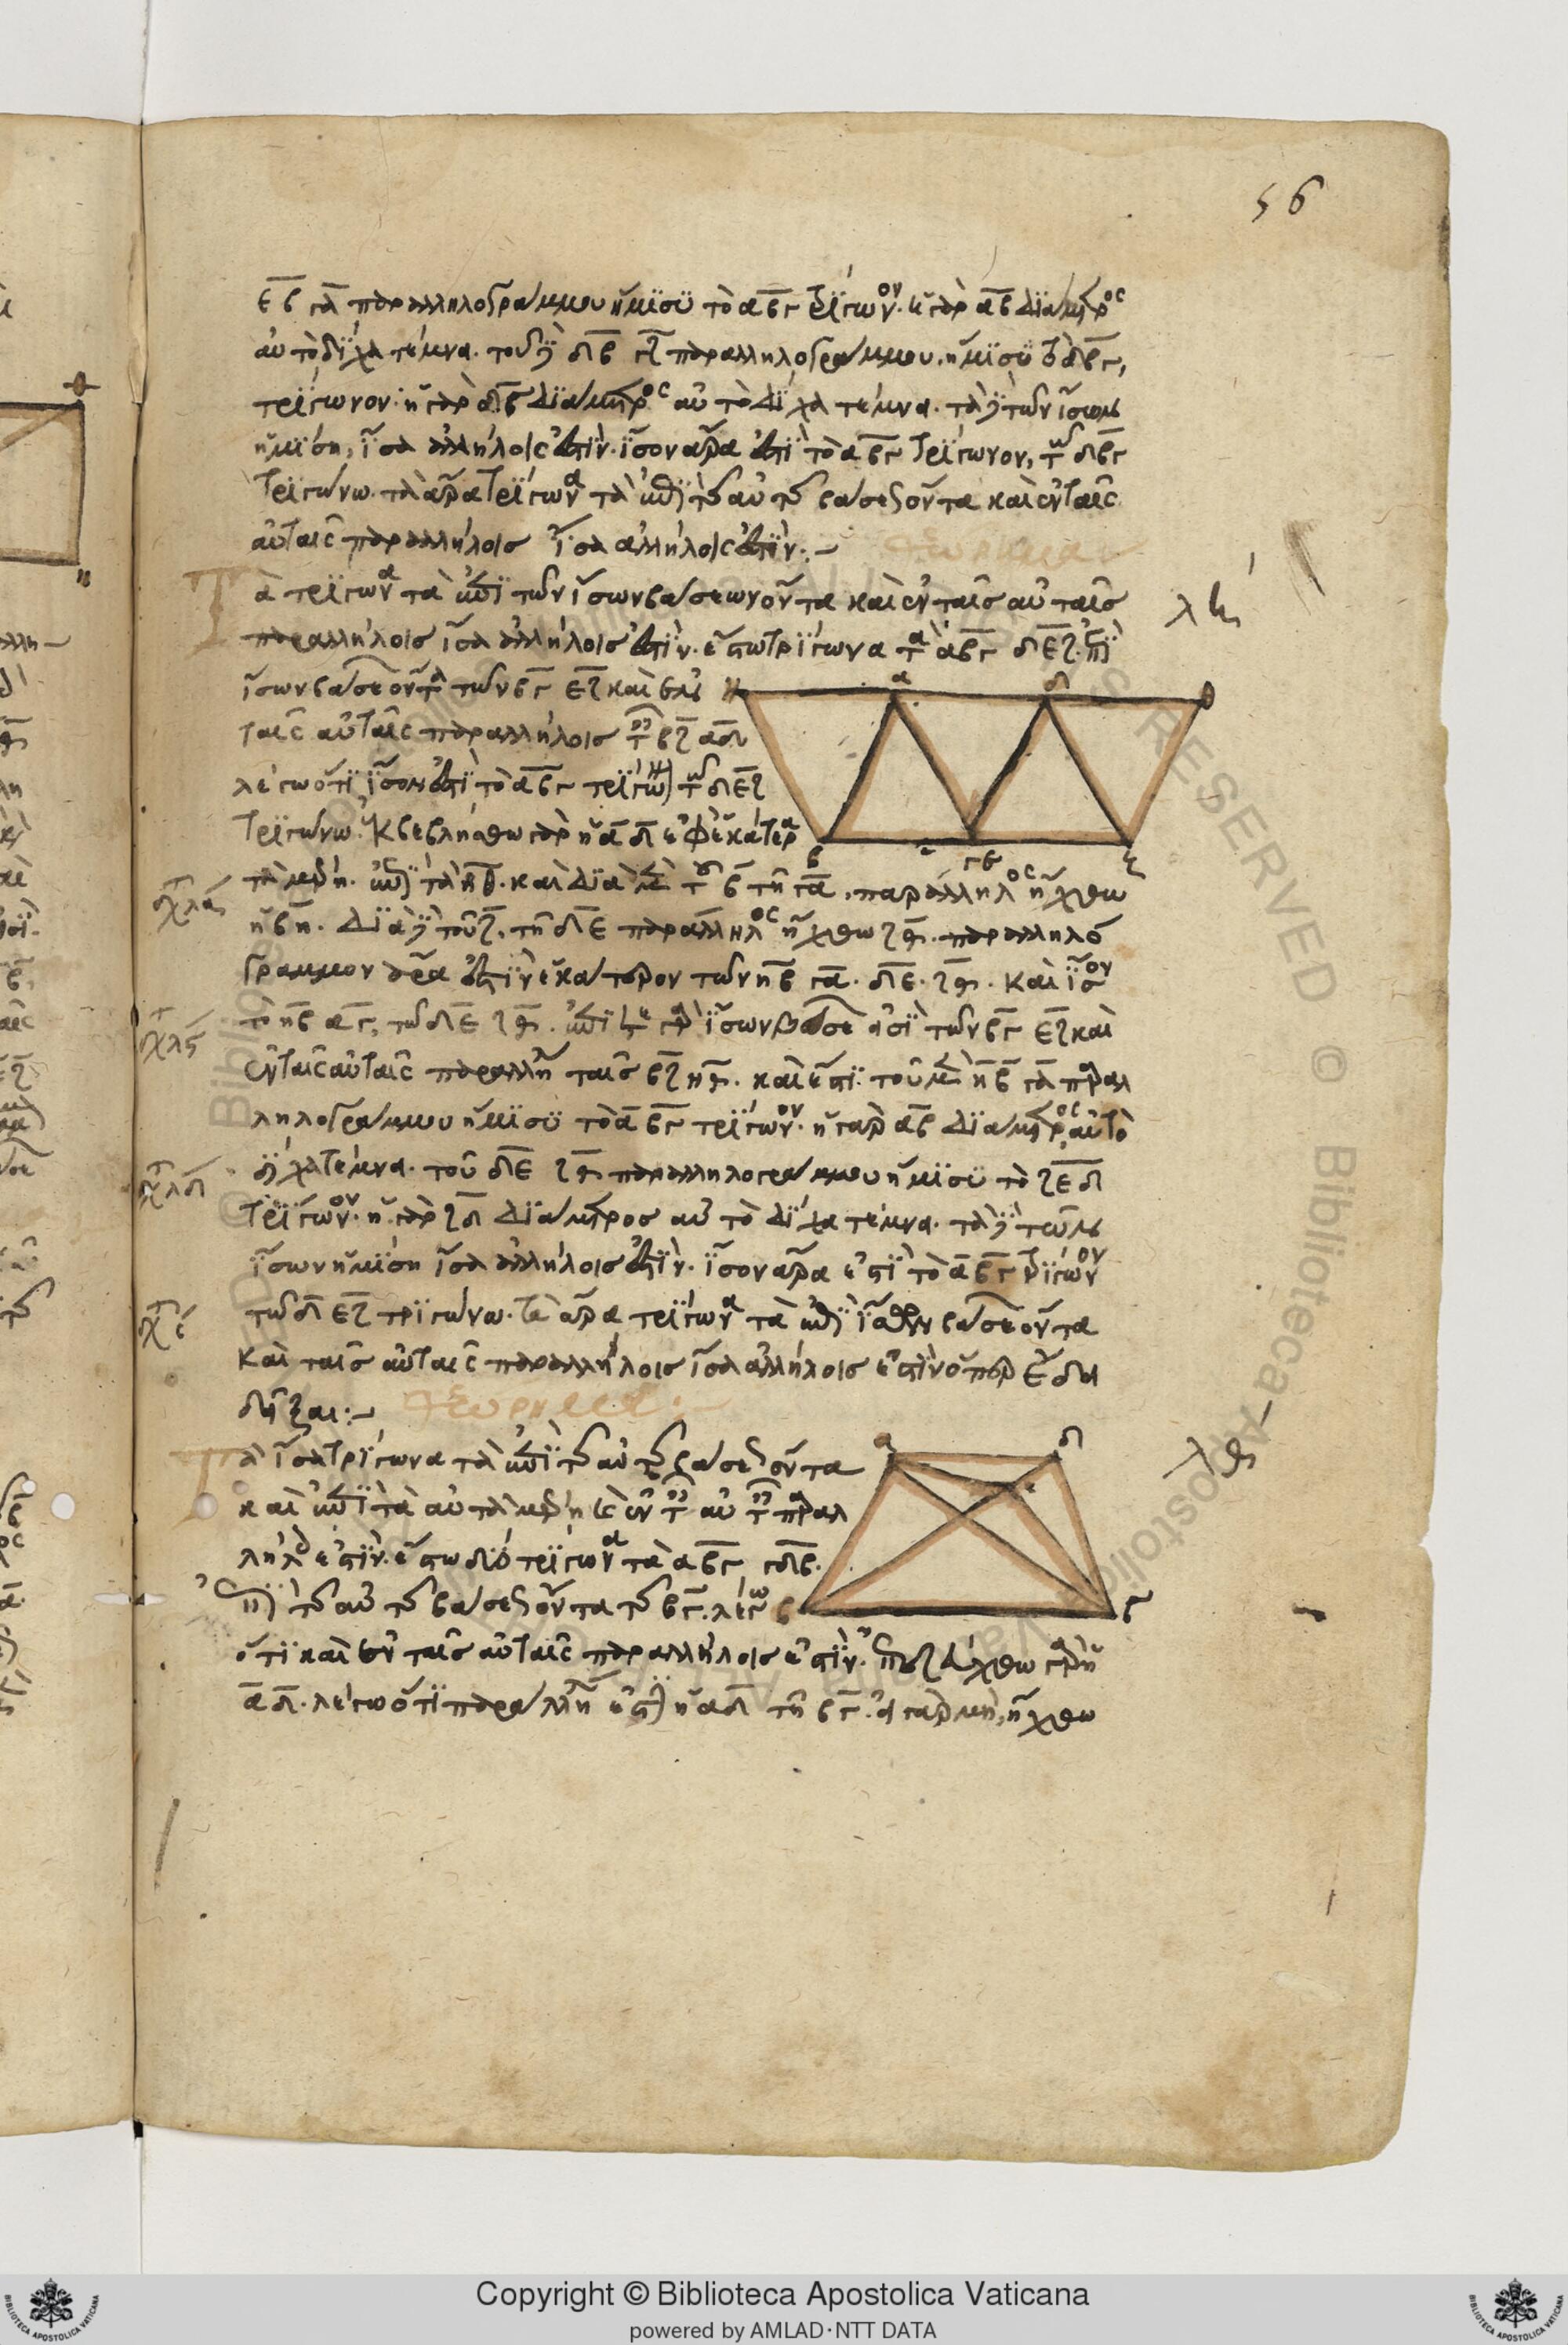 56
εβ γα παραλληλογράμμου ἥμισυ τὸ αβγ τρίγωνον· ἡ γὰρ αβ διάμετρος
αὐτὸ δίχα τέμνει· τοῦ δὲ δβ γζ παραλληλογράμμου, ἥμισυ τὸ δβγ,
τρίγωνον· ἡ γὰρ δγ διάμετρος αὐτὸ δίχα τέμνει· τὰ δὲ τῶν ἴσων
ἡμίση, ἴσα ἀλλήλοις ἐστίν· ἴσον ἄρα ἐστὶ τὸ αβγ τρίγωνον, τῷ δβγ
τριγώνω· τὰ ἄρα τρίγωνα τὰ ἐπὶ τῆς αὐτῆς βάσεως ὄντα καὶ ἐν ταῖς
αὐταῖς παραλλήλοις ἴσα ἀλλήλοις ἐστίν:-
Τὰ τρίγωνα τὰ ἐπὶ τῶν ἴσων βάσεων ὄντα καὶ ἐν ταῖς αὐταῖς
λη
παραλλήλοις ἴσα ἀλλήλοις ἐστίν· ἔστω τρίγωνα τὰ αβγ δεζ ἐπὶ
ἴσων βάσεων ὄντα τῶν βγ εζ καὶ ἐν
ταῖς αὐταῖς παραλλήλοις ταῖς βζ αδ
λέγω ὅτι ἴσον ἐστὶ τὸ αβγ τρίγωνον τῷ δεζ
τριγώνω· ἐκβεβλήσθω γὰρ ἡ αδ ἐφ' ἑκάτερα
η α δ θ
β γε ζ
τὰ μέρη· ἐπὶ τὰ ηθ· καὶ διὰ μὲν τοῦ β τῇ γα, παράλληλος ἤχθω
ἡ βη· διὰ δὲ τοῦ ζ, τῇ δε παράλληλος ἤχθω ζθ· παραλληλό
γραμμον ἄρα ἐστὶν ἑκάτερον τῶν ηβ γα· δε· ζθ· καὶ ἴσον
τὸ ηβ αγ, τῷ δε ζθ· ἐπί τε γὰρ ἴσων βάσεών εἰσι τῶν βγ εζ καὶ
ἐν ταῖς αὐταῖς παραλλήλοις ταῖς βζ ηθ· καὶ ἔστι τοῦ μὲν ηβ γα παραλ
ληλογράμμου ἥμισυ τὸ αβγ τρίγωνον· ἡ γὰρ αβ διάμετρος αὐτὸ
δίχα τέμνει· τοῦ δε ζθ παραλληλογράμμου ἥμισυ τὸ ζεδ
τρίγωνον· ἡ γὰρ ζδ διάμετρος αὐτὸ δίχα τέμνει· τὰ δὲ τῶν
ἴσων ἡμίση ἴσα ἀλλήλοις ἐστίν· ἴσον ἄρα ἐστὶ τὸ αβγ τρίγωνον
τῷ δεζ τριγώνω· τὰ ἄρα τρίγωνα τὰ ἐπὶ ἴσων βάσεων ὄντα
καὶ ταῖς αὐταῖς παραλλήλοις ἴσα ἀλλήλοις ἐστὶν ὅπερ ἔδει
δεῖξαι:-
Τὰ ἴσα τρίγωνα τὰ ἐπὶ τῆς αὐτῆς βάσεως ὄντα
λθ
καὶ ἐπὶ τὰ αὐτὰ μέρη καὶ ἐν ταῖς αὐταῖς παραλ
λήλοις ἐστίν· ἔστω δύο τρίγωνα τὰ αβγ γδβ·
ἐπὶ τῆς αὐτῆς βάσεως ὄντα τῆς βγ· λέγω
α δ
ε
β γ
ὅτι καὶ ἐν ταῖς αὐταῖς παραλλήλοις ἐστίν· ἐπεζεύχθω γὰρ ἡ
αδ· λέγω ὅτι παράλληλος ἐστὶν ἡ αδ τῇ βγ· εἰ γὰρ μή, ἤχθω
Copyright © Biblioteca Apostolica Vaticana
powered by AMLAD·NTT DATA